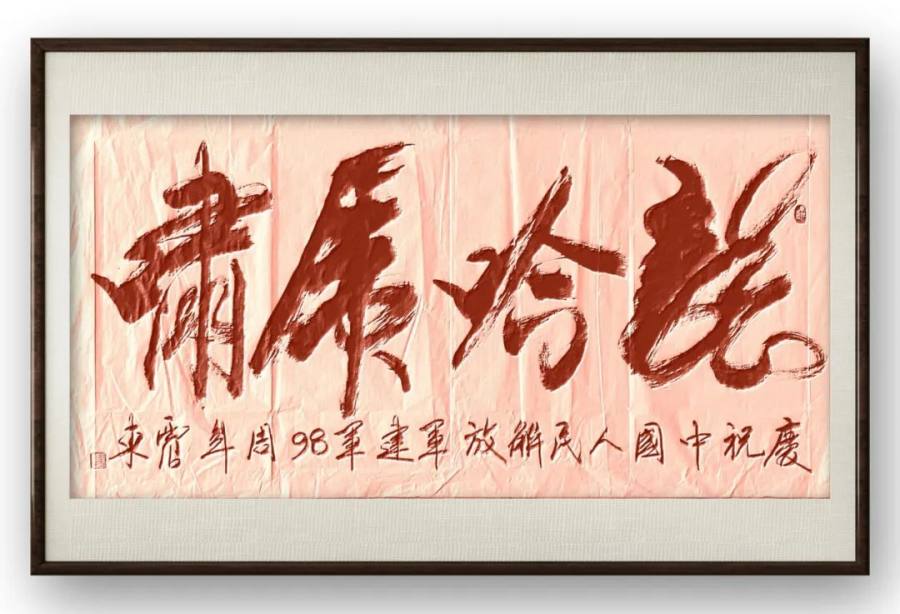 龍吟虎嘯
慶祝中國人民解放軍建軍98周年